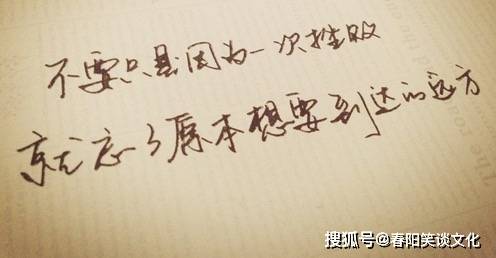 不要只是因为一次挫败
就忘了原本想要到达的远方
搜狐号@春阳笑谈文化